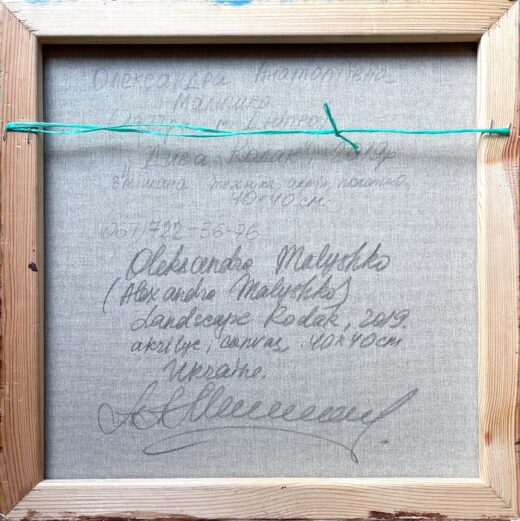 Олександра Анатоліївна
Малишко
(1977р. м. Дніпро)
Дика Кодак, 2019р
змішана техніка, акріл, полотно.
40×40 см.
(067) 722-36-76
Oleksandra Malyshko
(Alexandra Malyshko)
Landscape Kodak, 2019.
akrilyc, canvas 40×40cm
Ukraine.